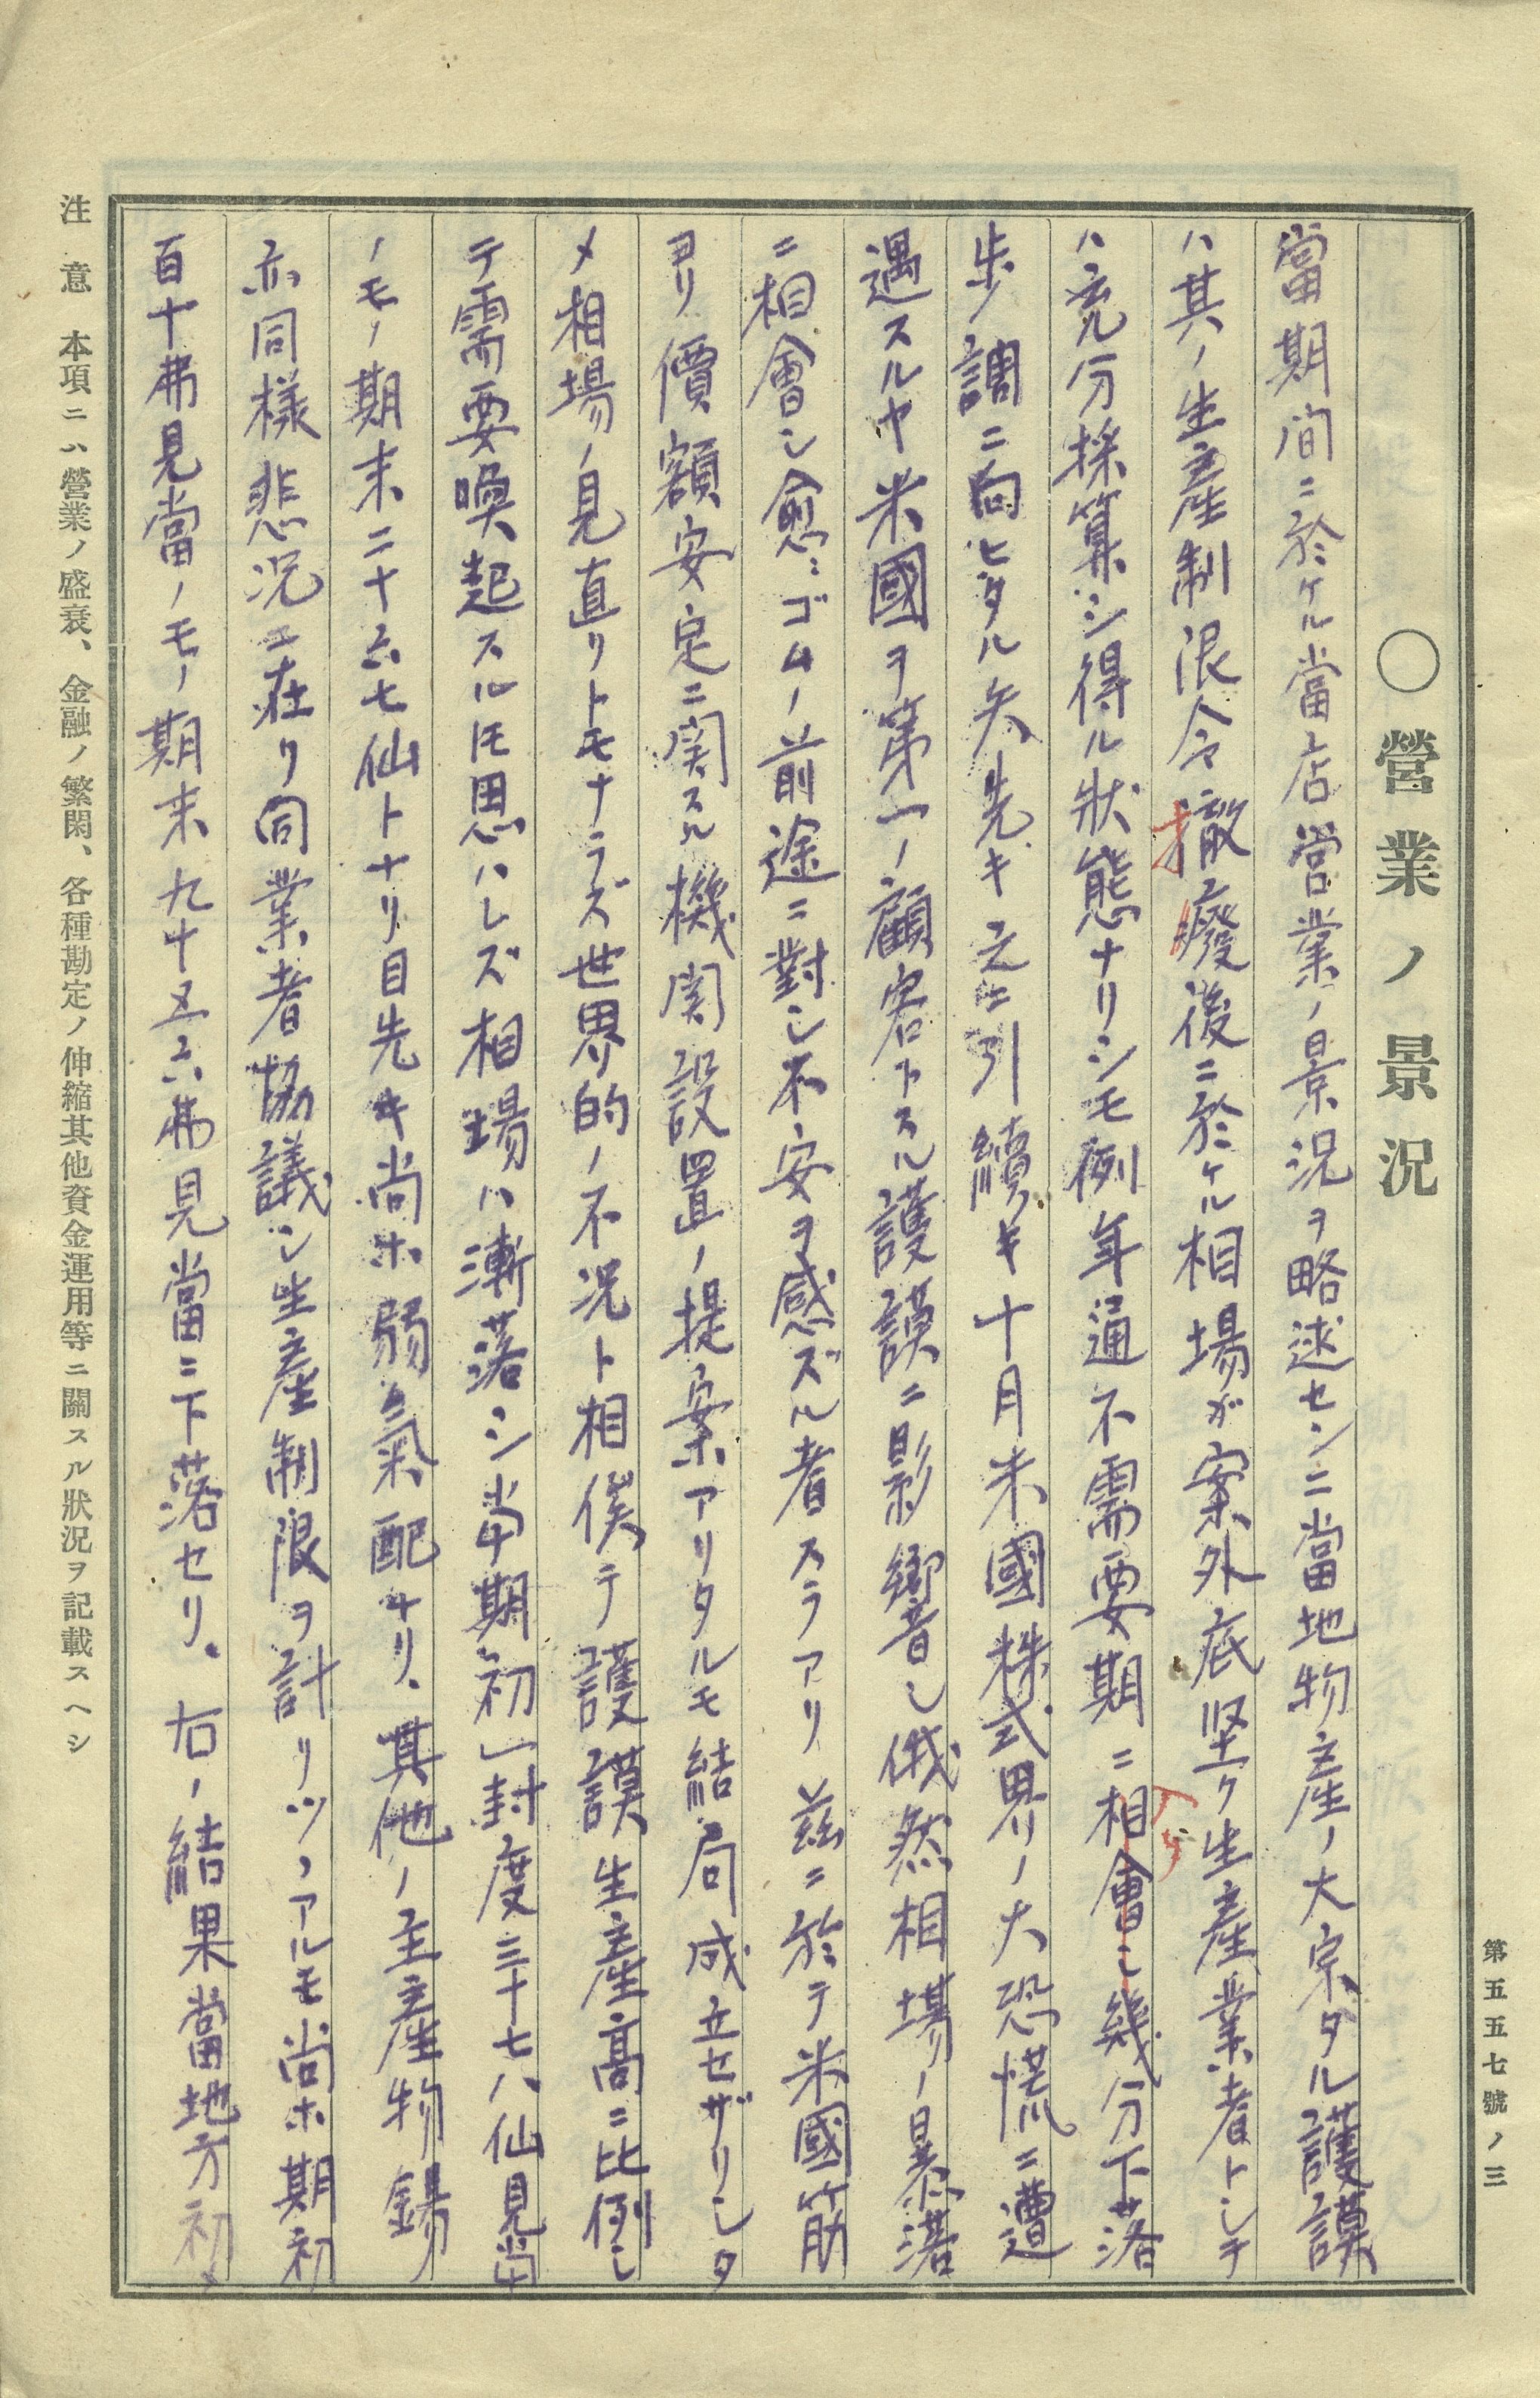 第五五七號ノ三
〇營業ノ景況
當期間ニ於ケル當店営業ノ景況ヲ略述センニ當地物産ノ大宗タル護謨
ハ其ノ生産制限令撤廢後ニ於ケル相場ガ案外底堅ク生産業者トシテ
ハ充分採算シ得ル狀態ナリシモ例年通不需要期ニ相會シ幾分下落
歩調ニ向ヒタル矢先キ之ニ引續キ十月米國株式界ノ大恐慌ニ遭
遇スルヤ米國ヲ第一ノ顧客トスル護謨ニ影響シ俄然相場ノ暴落
ニ相會シ愈ミゴムノ前途ニ對シ不安ヲ感ズル者スラアリ茲ニ於テ米國筋
ヨリ價額安定ニ関スル機関設置ノ提案アリタルモ結局成立セザリシタ
メ相場ノ見直リトモナラズ世界的ノ不况ト相俟テ護謨生産高ニ比例シ
テ需要喚起スルトモ思ハレズ相場ハ漸落シ当期初一封度三十七八仙見当
ノモノ期末二十六七仙トナリ目先キ尚ホ弱氣配ナリ、其他ノ主産物錫
亦同樣悲况ニ在リ同業者協議シ生産制限ヲ計リツヽアルモ尚ホ期初
百十弗見當ノモノ期末九十五六弗見當ニ下落セリ。右ノ結果當地方初メ
注意　本項ニハ營業ノ盛衰、金融ノ繁閑、各種勘定ノ伸縮其他資金運用等ニ關スル狀況ヲ記載スヘシ